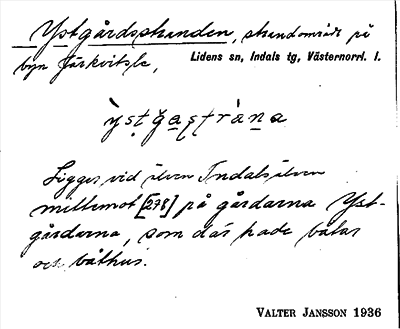 Ystgårdsstranden, strandområde på
byn Järkvitsle, Lidens sn, Indals tg, Västernorrl. l.
Ligger vid älven Indalsälven
mittemot [278] på gårdarna Yst-
gårdarna, som där hade båtar
och båthus.
VALTER JANSSON 1936